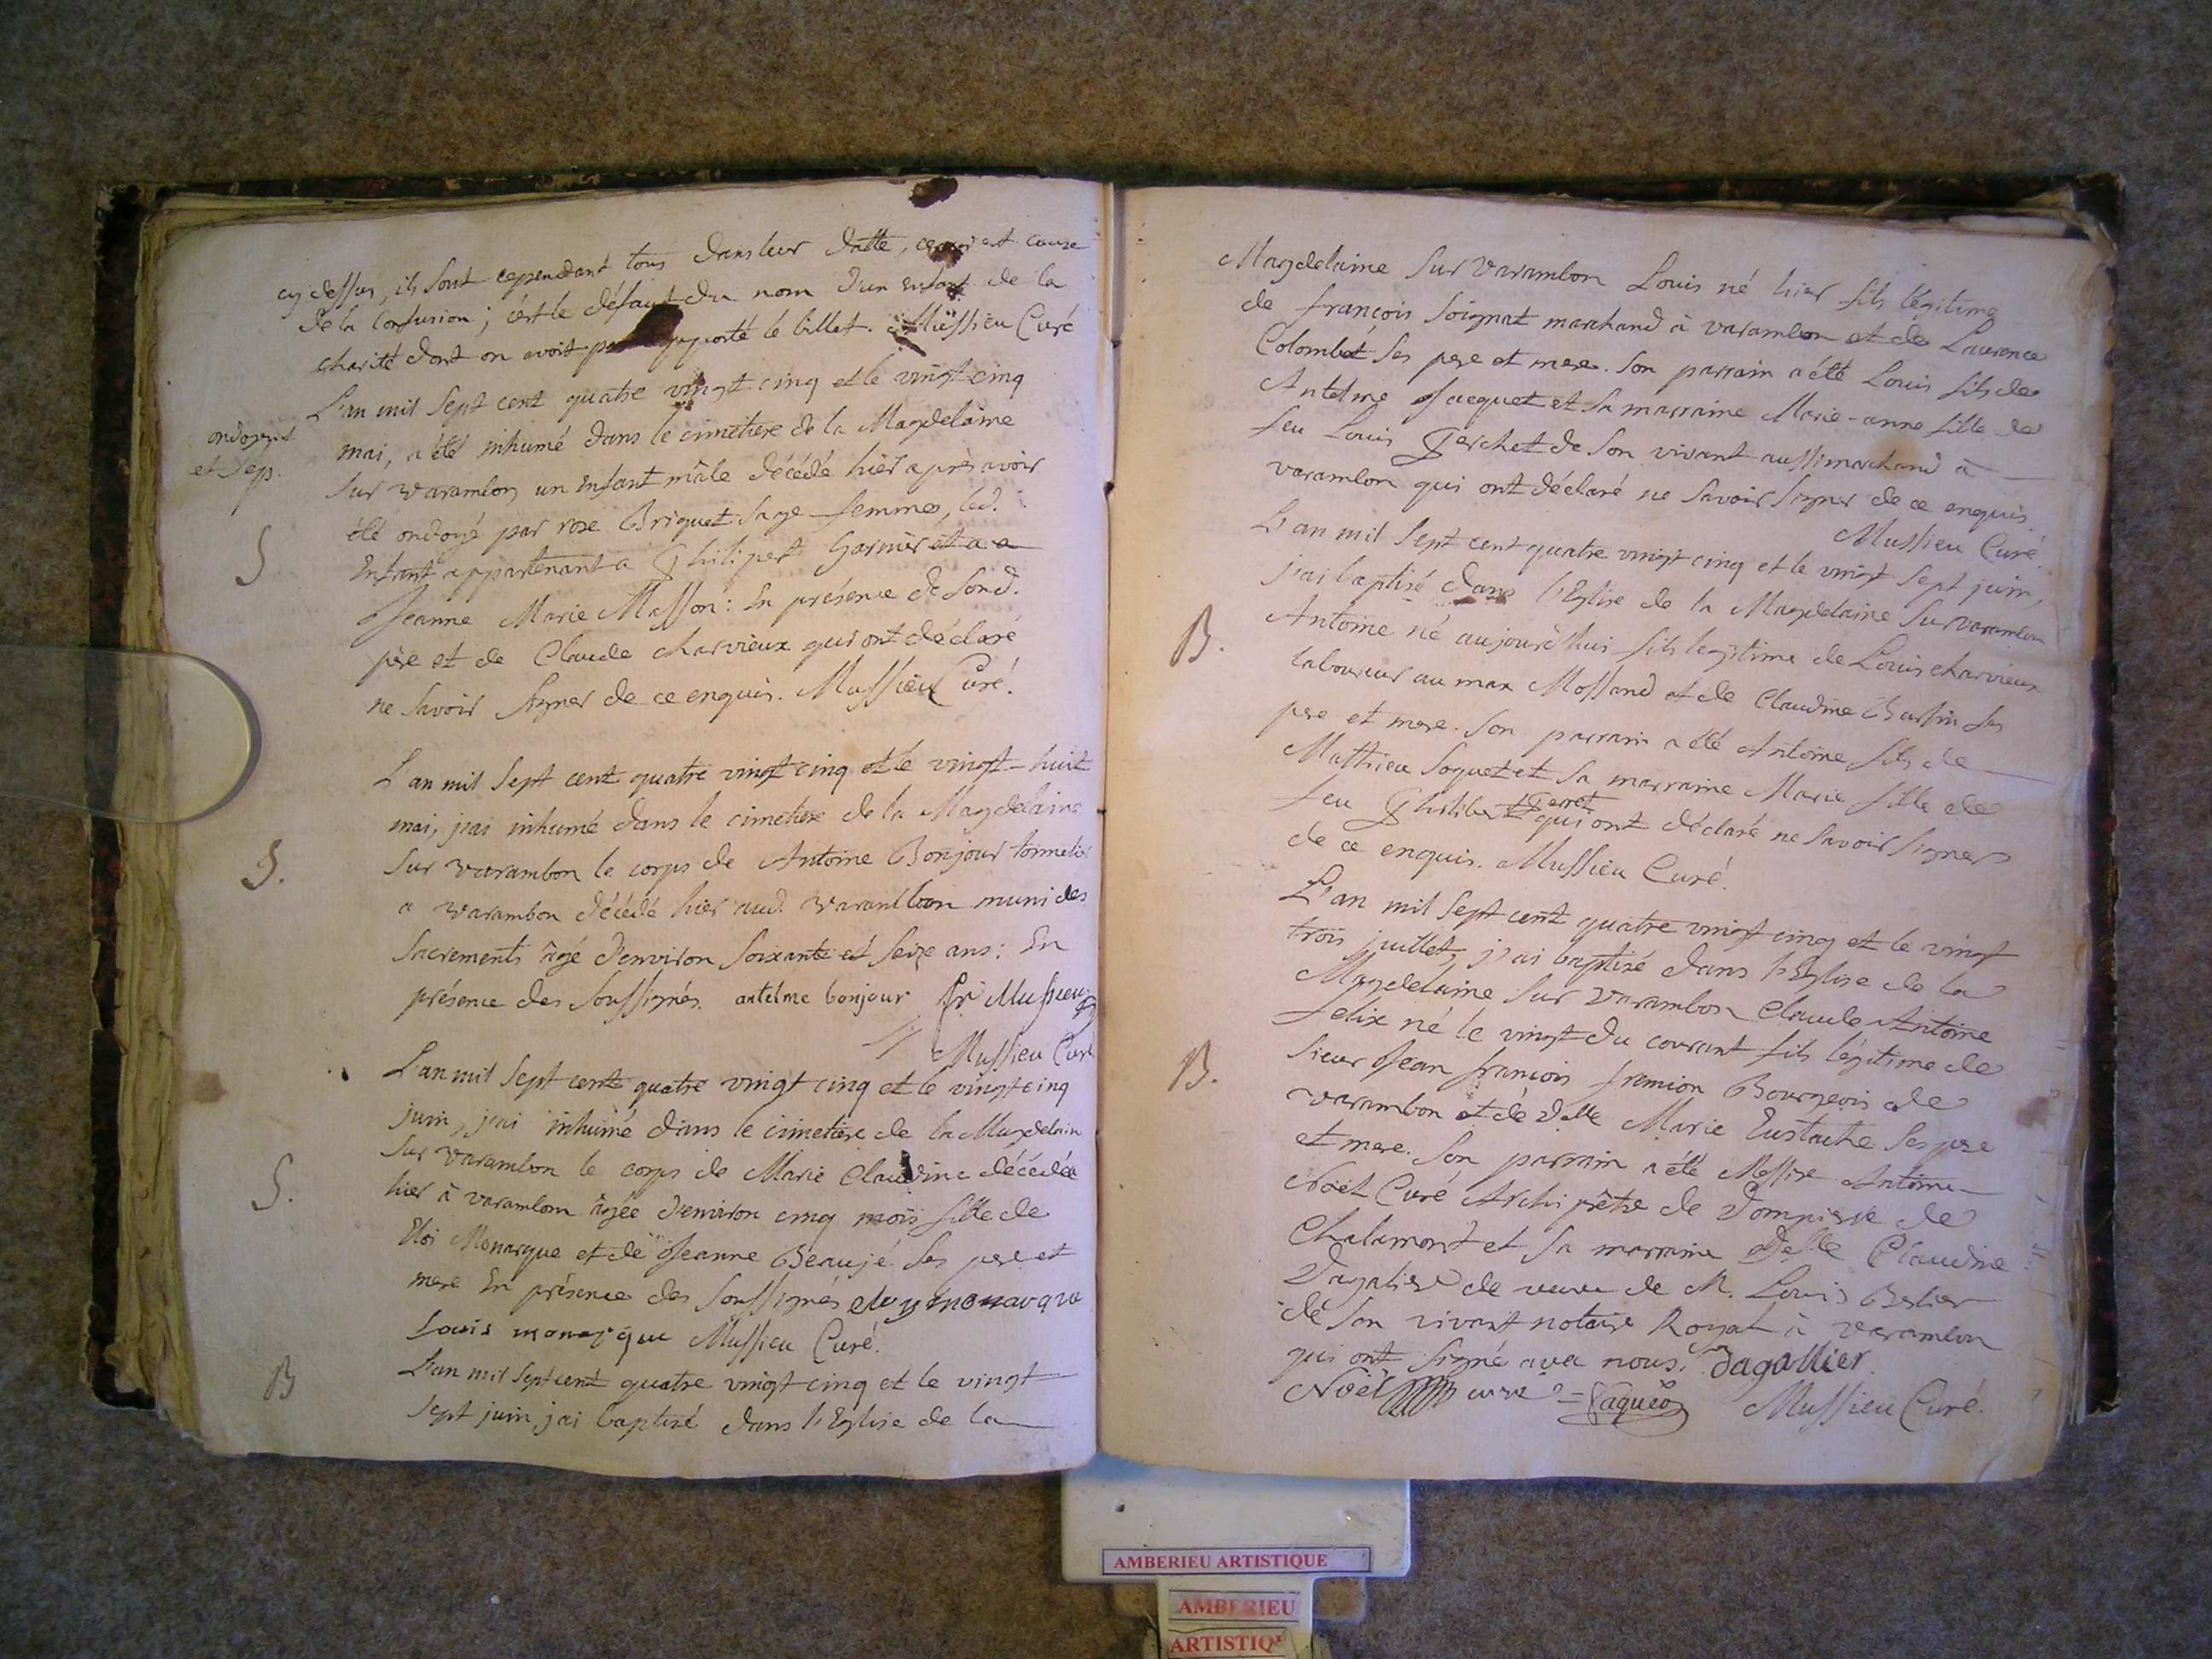 cy dessus, ils sont cependant tous dans leur datte, ce qui est cause
de la confusion; c'est le défaut du nom d'un enfant de la
charité dont on avoit pas apporté le billet. Mussieu Curé
L'an mil sept cent quatre vingt cinq et le vingt cinq
ondoyent
et sep.
mai, a été inhumé dans le cimetiere de la Magdelaine
sur varambon un enfant mâle décédé hier après avoir
été ondoyé par rose Briquet sage femme, led.
S
enfant appartenant a Philipert Garnier et a
Jeanne Marie Masson: En présence de sond.
père et de Claude charvieux qui ont déclaré
ne savoir signer de ce enquis. Mussieu Curé.
L'an mil sept cent quatre vingt cinq et le vingt-huit
mai, j'ai inhumé dans le cimetiere de la Magdelaine
S.
sur varambon le corps de Antoine Bonjour tonnelier
a varambon décédé hier aud. varambon muni des
sacrements âgé d'environ soixante et seize ans: En
présence des soussignés. antelme bonjour fr Mussieu
Mussieu Curé
L'an mil sept cent quatre vingt cinq et le vingt cinq
juin, j'ai inhumé dans le cimetiere de la Magdelain
S.
sur varambon le corps de Marie Claudine décédée
hier à varambon âgée d'environ cinq mois fille de
Eloi Monarque et de Jeanne Beaujé ses pere et
mere En présence des soussignés eloy monarque
Louis monarque Mussieu Curé.
B
L'an mil sept cent quatre vingt cinq et le vingt
sept juin, j'ai baptisé dans l'Eglise de la
Magdelaine sur varambon Louis né hier fils légitime
de françois soignat marchand à varambon et de Laurence
Colombet ses pere et mere. son parrain a été Louis fils de
Antelme Jacquet et sa marraine Marie-anne fille de
feu Louis Perchet de son vivant aussi marchand à
varambon qui ont déclaré ne savoir signer de ce enquis.
Mussieu Curé.
L'an mil sept cent quatre vingt cinq et le vingt sept juin,
j'ai baptisé dans l'Eglise de la Magdelaine sur varambon
B.
Antoine né aujourd'hui fils legitime de Louis charvieux
laboureur au max Mossand et de Claudine ses
pere et mere. son parrain a été Antoine fils de
Mathieu soquet et sa marraine Marie fille de
feu Philibert perret qui ont déclaré ne savoir signer
de ce enquis. Mussieu Curé.
L'an mil sept cent quatre vingt cinq et le vingt
trois juillet, j'ai baptisé dans l'Eglise de la
Magdelaine sur varambon Claude Antoine
felix né le vingt du courant fils légitime de
B.
sieur Jean françois fremion Bourgeois de
varambon et de Delle Marie Eustache ses pere
et mere. son parrain a été Messire Antoine
Noël Curé Archiprêtre de Dompierre de
Chalamont et sa marraine Delle Claudine
Dagalier de veuve de M. Louis
de son vivant notaire Royal à varambon
qui ont signé avec nous. dagallier
Noël curé Mussieu Curé.
AMBERIEU ARTISTIQUE
AMBERIEU
ARTISTIQ